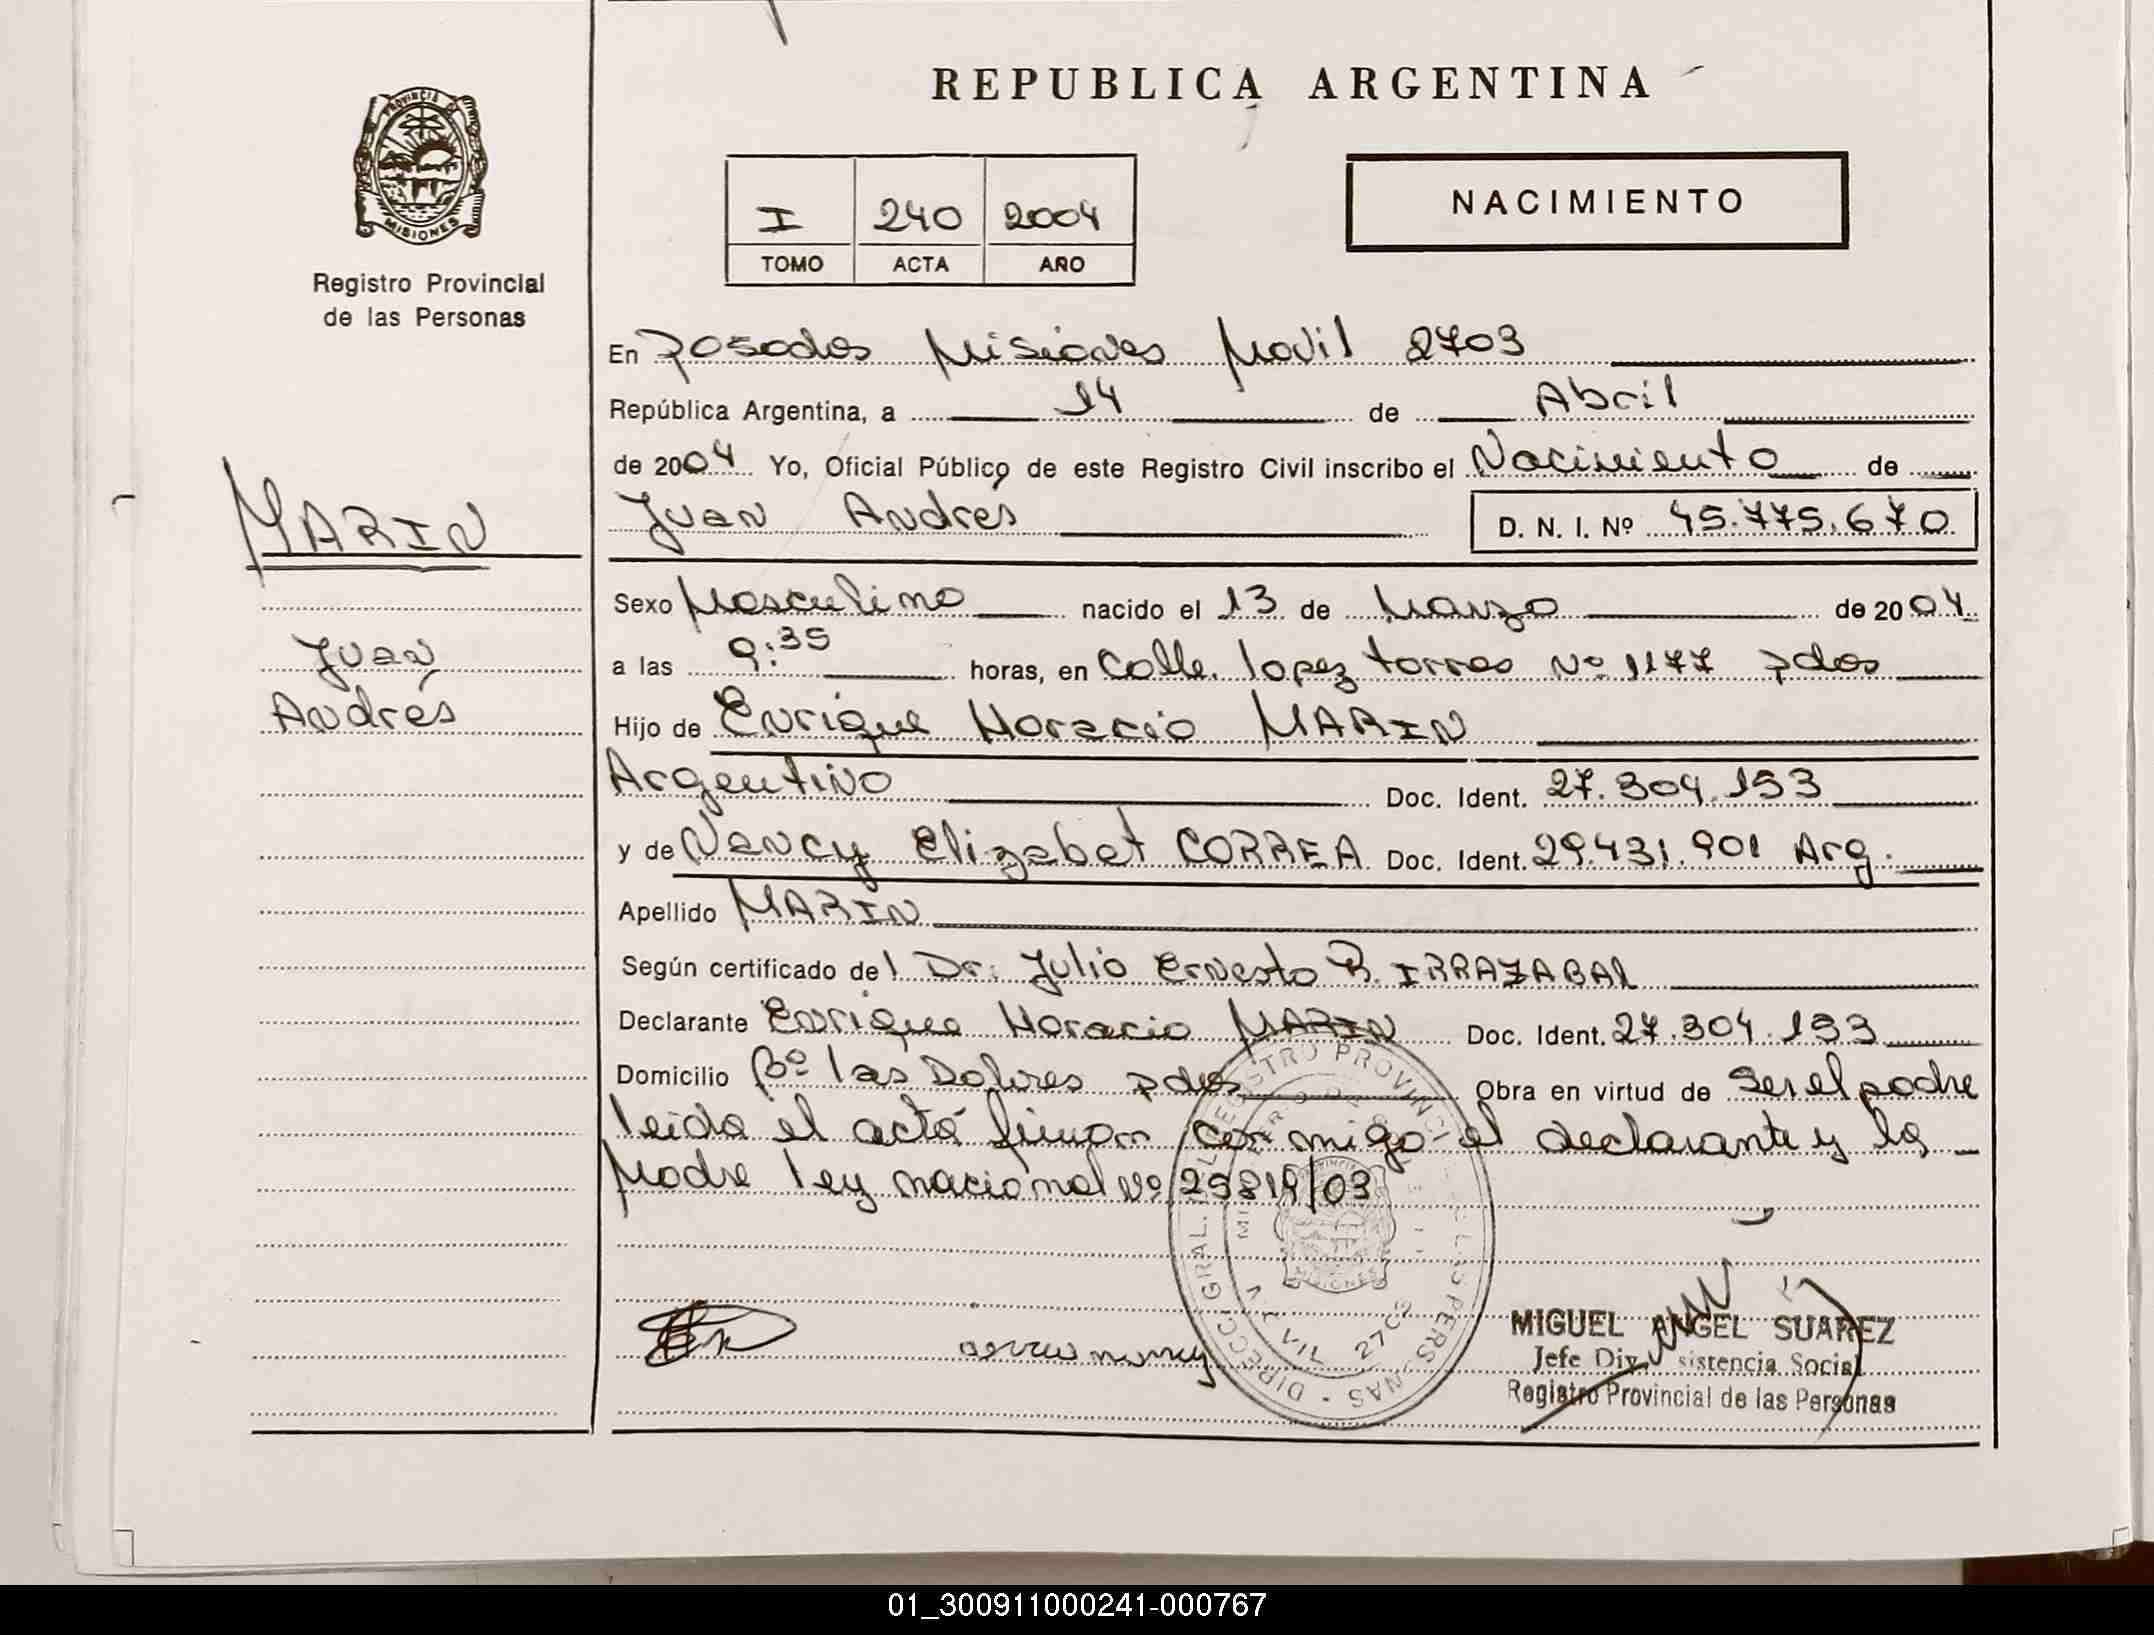 REPUBLICA ARGENTINA
PROVINCIA DE
MISIONES
Registro Provincial
de las Personas
I 240 2004
TOMO ACTA AÑO
NACIMIENTO
En Posadas Misiones Movil 2703
República Argentina, a 14 de Abril
de 2004 Yo, Oficial Público de este Registro Civil inscribo el Nacimiento de
MARIN
Juan Andrés D. N. I. Nº 45.775.670
Sexo Masculino nacido el 13 de Marzo de 2004
Juan
Andrés
a las 9:35 horas, en Calle lopez torres Nº 1177 Pdas
Hijo de Enrique Horacio MARIN
Argentino Doc. Ident. 27.304.193
y de Nancy Elizabet CORREA Doc. Ident. 29.431.901 Arg.
Apellido MARIN
Según certificado del Dr. Julio Ernesto R. IRRAZABAL
Declarante Enrique Horacio MARIN Doc. Ident. 27.304.193
Domicilio Bº las Dolores Pdas Obra en virtud de ser el padre
leida el acta firman conmigo el declarante y la
Madre ley nacional Nº 25819/03
DIRECC. GRAL. DEL REGISTRO PROVINCIAL DE LAS PERSONAS
MISIONES
MIGUEL ANGEL SUAREZ
Jefe Div. sistencia Social
Registro Provincial de las Personas
01_300911000241-000767